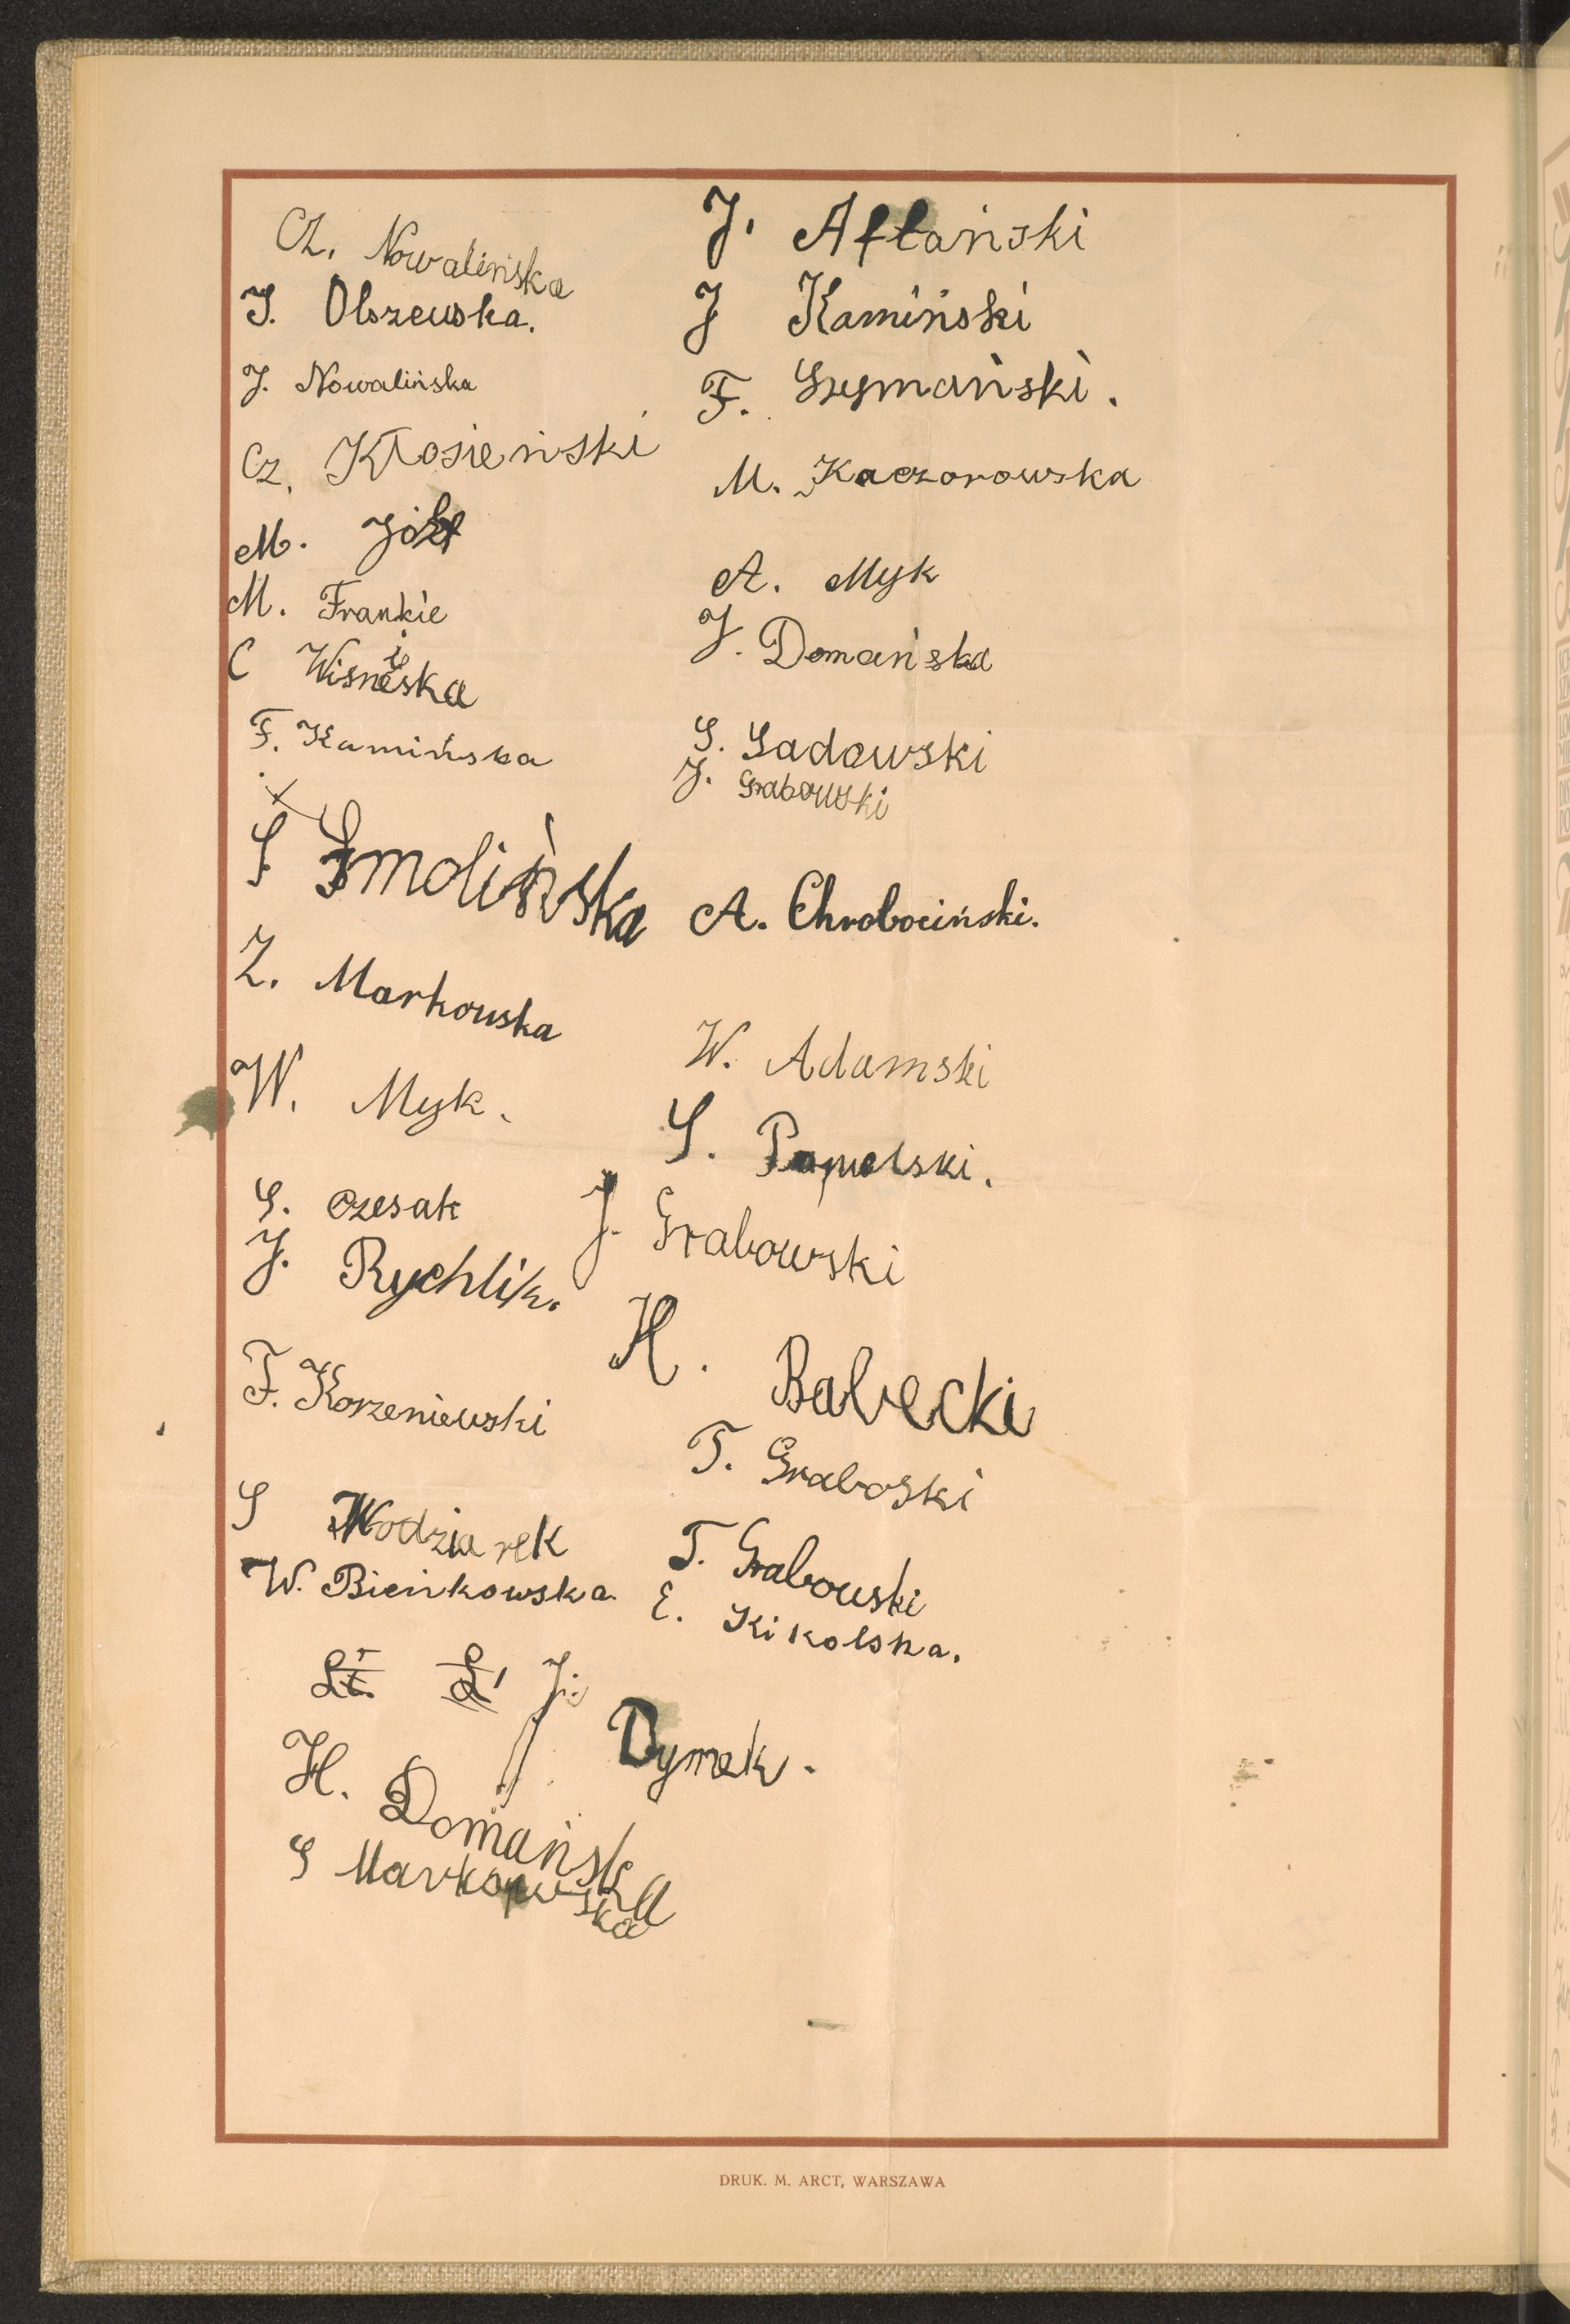 Cz. Nowalińska
J. Olszewska.
J. Nowalińska
Cz. Kłosieński
M.
M. Frankie
C Wisnieska
F. Kamińska
S Smolińska
Z. Markowska
W. Myk.
S. Czesak
J. Rychlik.
F. Korzeniewski
S Wodziarek
W. Bieńkowska.
J. Dymek.
H. Domańska
S Markowska
J. Aflański
J Kamiński
F. Szymański.
M. Kaczorowska
A. Myk
J. Domańska
S. Sadowski
J. Grabowski
A. Chrobociński.
W. Adamski
S.
J. Grabowski
H. Babecki
T. Graboski
T. Grabowski
E. Kikolska.
DRUK. M. ARCT, WARSZAWA